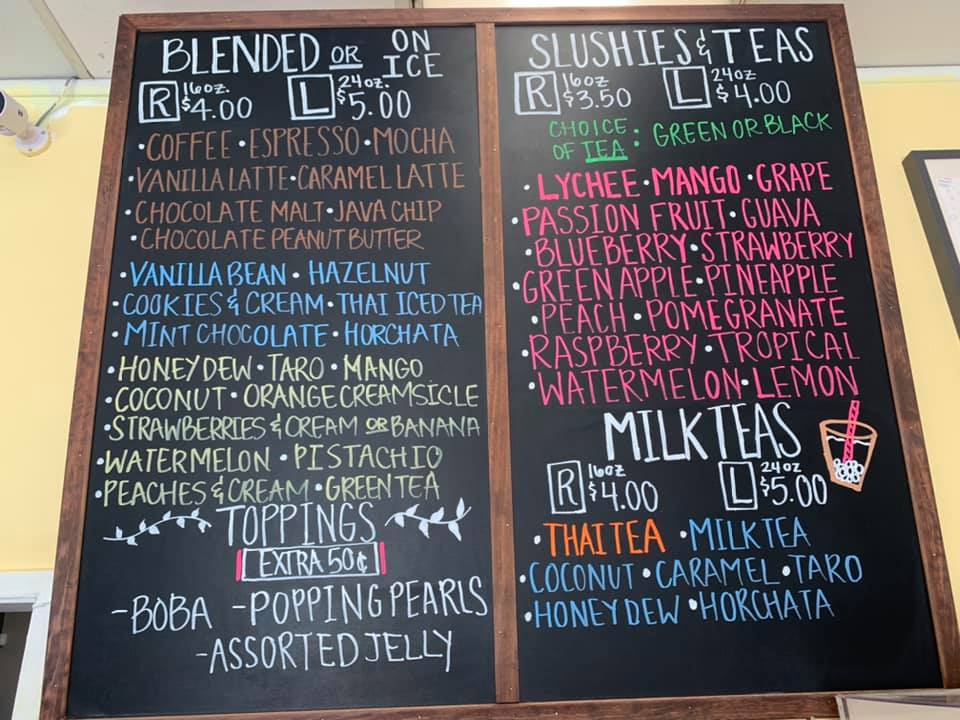 BLENDED OR ON ICE
R 16oz. $4.00 L 24oz. $5.00
• COFFEE • ESPRESSO • MOCHA
• VANILLA LATTE • CARAMEL LATTE
• CHOCOLATE MALT • JAVA CHIP
• CHOCOLATE PEANUT BUTTER
• VANILLA BEAN • HAZELNUT
• COOKIES & CREAM • THAI ICED TEA
• MINT CHOCOLATE • HORCHATA
• HONEYDEW • TARO • MANGO
• COCONUT • ORANGE CREAMSICLE
• STRAWBERRIES & CREAM OR BANANA
• WATERMELON • PISTACHIO
• PEACHES & CREAM • GREEN TEA
TOPPINGS
EXTRA 50¢
- BOBA - POPPING PEARLS
- ASSORTED JELLY
SLUSHIES & TEAS
R 16oz $3.50 L 24oz $4.00
CHOICE OF TEA : GREEN OR BLACK
• LYCHEE • MANGO • GRAPE
• PASSION FRUIT • GUAVA
• BLUEBERRY • STRAWBERRY
• GREEN APPLE • PINEAPPLE
• PEACH • POMEGRANATE
• RASPBERRY • TROPICAL
• WATERMELON • LEMON
MILK TEAS
R 16oz $4.00 L 24oz $5.00
• THAI TEA • MILK TEA
• COCONUT • CARAMEL • TARO
• HONEYDEW • HORCHATA